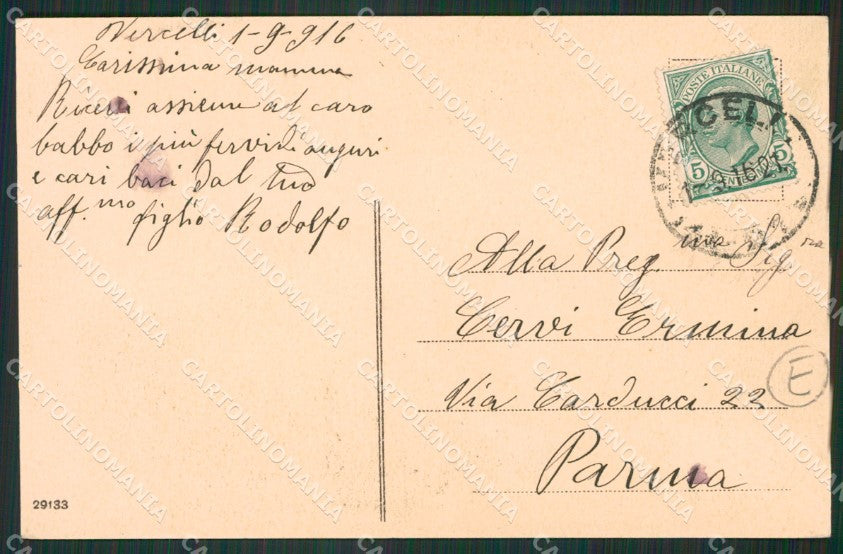 Vercelli 1-9-916
Carissima mamma
Ricevi assieme al caro
babbo i più fervidi auguri
e cari baci dal tuo
aff.mo figlio Rodolfo
POSTE ITALIANE
5 CENTESIMI 5
1-9-16 21
Alla Preg.ma Sig.ra
Cervi Ermina
Via Carducci 22
E
Parma
29133
CARTOLINOMANIA